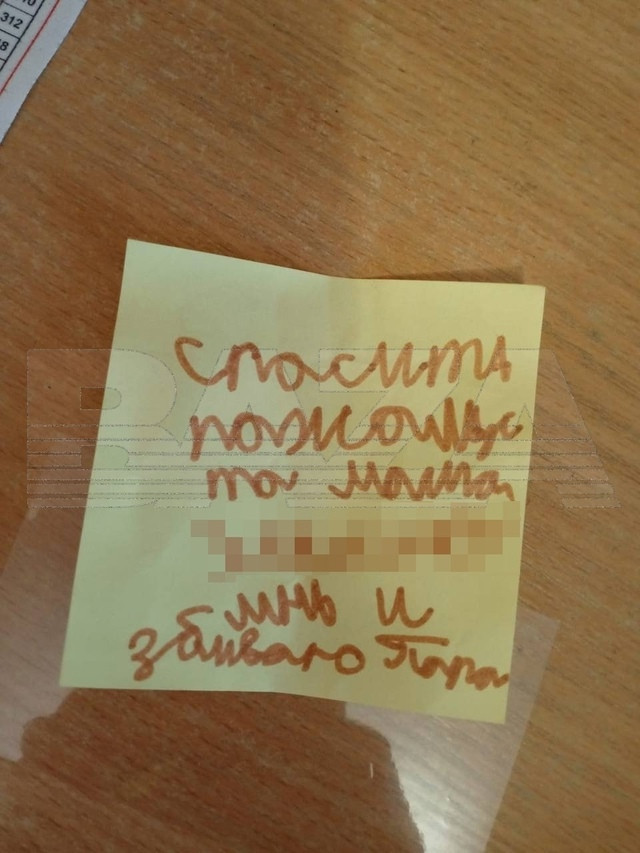 312
BAZA
спасити
пожоалус
та мама
мнь и
збиваго Пара